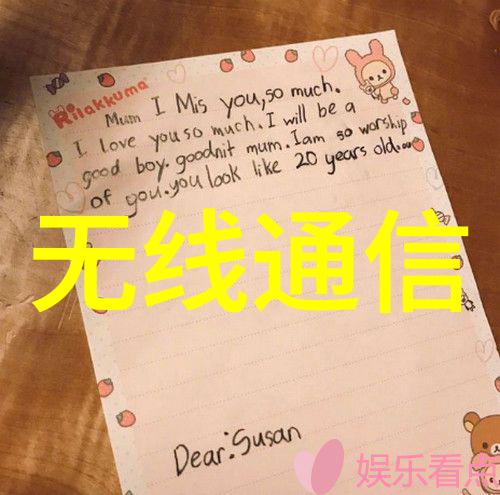 Rilakkuma
Mum I Mis you, so much.
I love you so much. I will be a
good boy. goodnit mum. I am so worship
of you. you look like 20 years old...
无线通信
Dear: Susan
娱乐看点